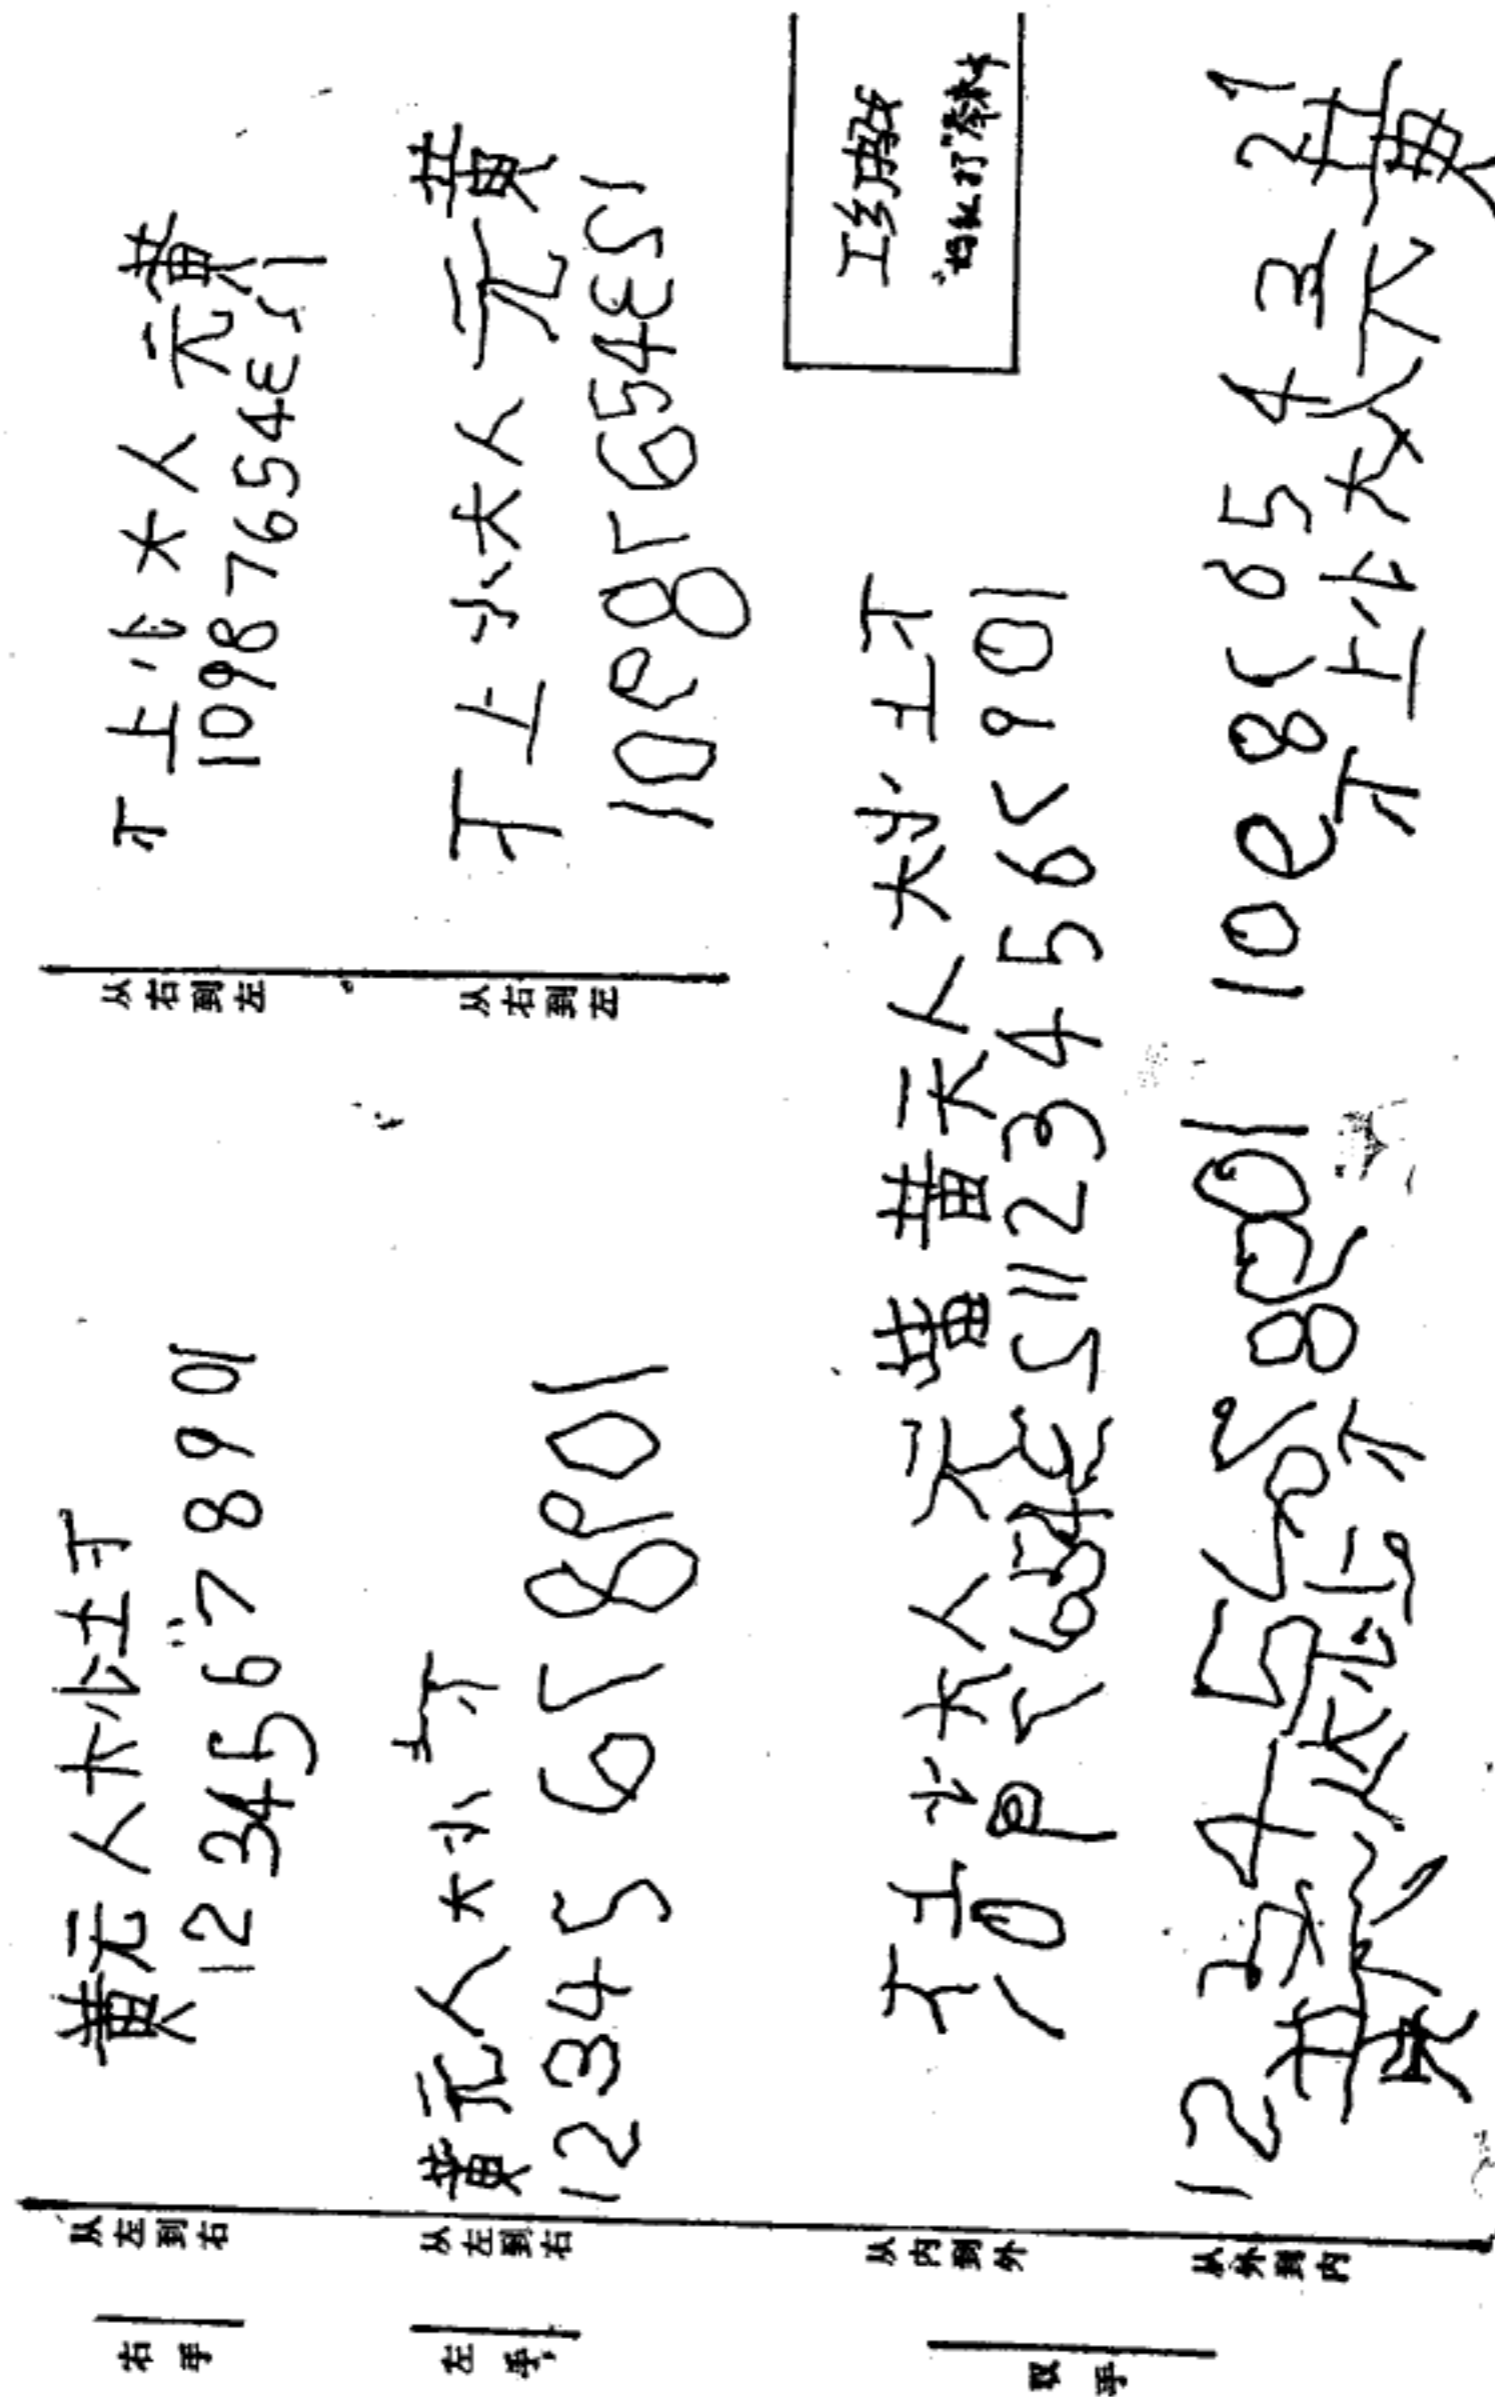 右手
从左到右
黄元人大小上下
12345678901
从右到左
下上小大人元黄
10987654321
左手
从左到右
黄元人大小上下
12345678901
从右到左
下上小大人元黄
10987654321
双手
从内到外
下上小大人元黄黄元人大小上下
10976543211234567901
从外到内
1234567890110987654321
黄元人大小上下下上小大人元黄